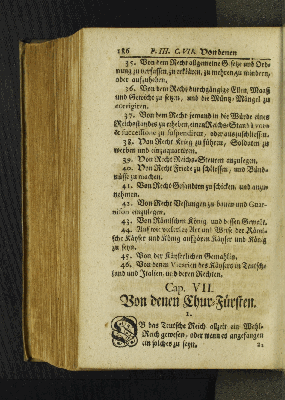 186 P. III. C. VII. Von denen
35. Von dem Recht allgemeine Gesetze und Ord-
nung zu verfassen, zu erklären, zu mehren, zu mindern,
oder aufzuheben.
36. Von dem Recht durchgängige Ellen, Maaß
und Gewicht zu setzen, und die Müntz-Mängel zu
corrigiren.
37. Von dem Recht jemand in die Würde eines
Reichsstandes zu erheben, einen Reichs-Stand à voto
& sessione zu suspendiren, oder auszuschliessen.
38. Von dem Recht Krieg zu führen, Soldaten zu
werben und einzuquartieren.
39. Von dem Recht Reichs-Steuern anzulegen.
40. Von dem Recht Friede zu schliessen, und Bünd-
nüsse zu machen.
41. Von dem Recht Gesandten zu schicken, und anzu-
nehmen.
42. Von dem Recht Vestungen zu bauen und Guar-
nison einzulegen.
43. Von dem Römischen König, und dessen Gewalt.
44. Auf wie vielerley Art und Weise der Römi-
sche Käyser und König aufhören Käyser und König
zu seyn.
45. Von der Käyserlichen Gemahlin.
46. Von denen Vicarien des Käysers in Teutsch-
land und Italien, und deren Rechten.
Cap. VII.
Von denen Chur-Fürsten.
1.
Ob das Teutsche Reich allzeit ein Wahl-
Reich gewesen, oder wenn es angefangen
ein solches zu seyn.
2.